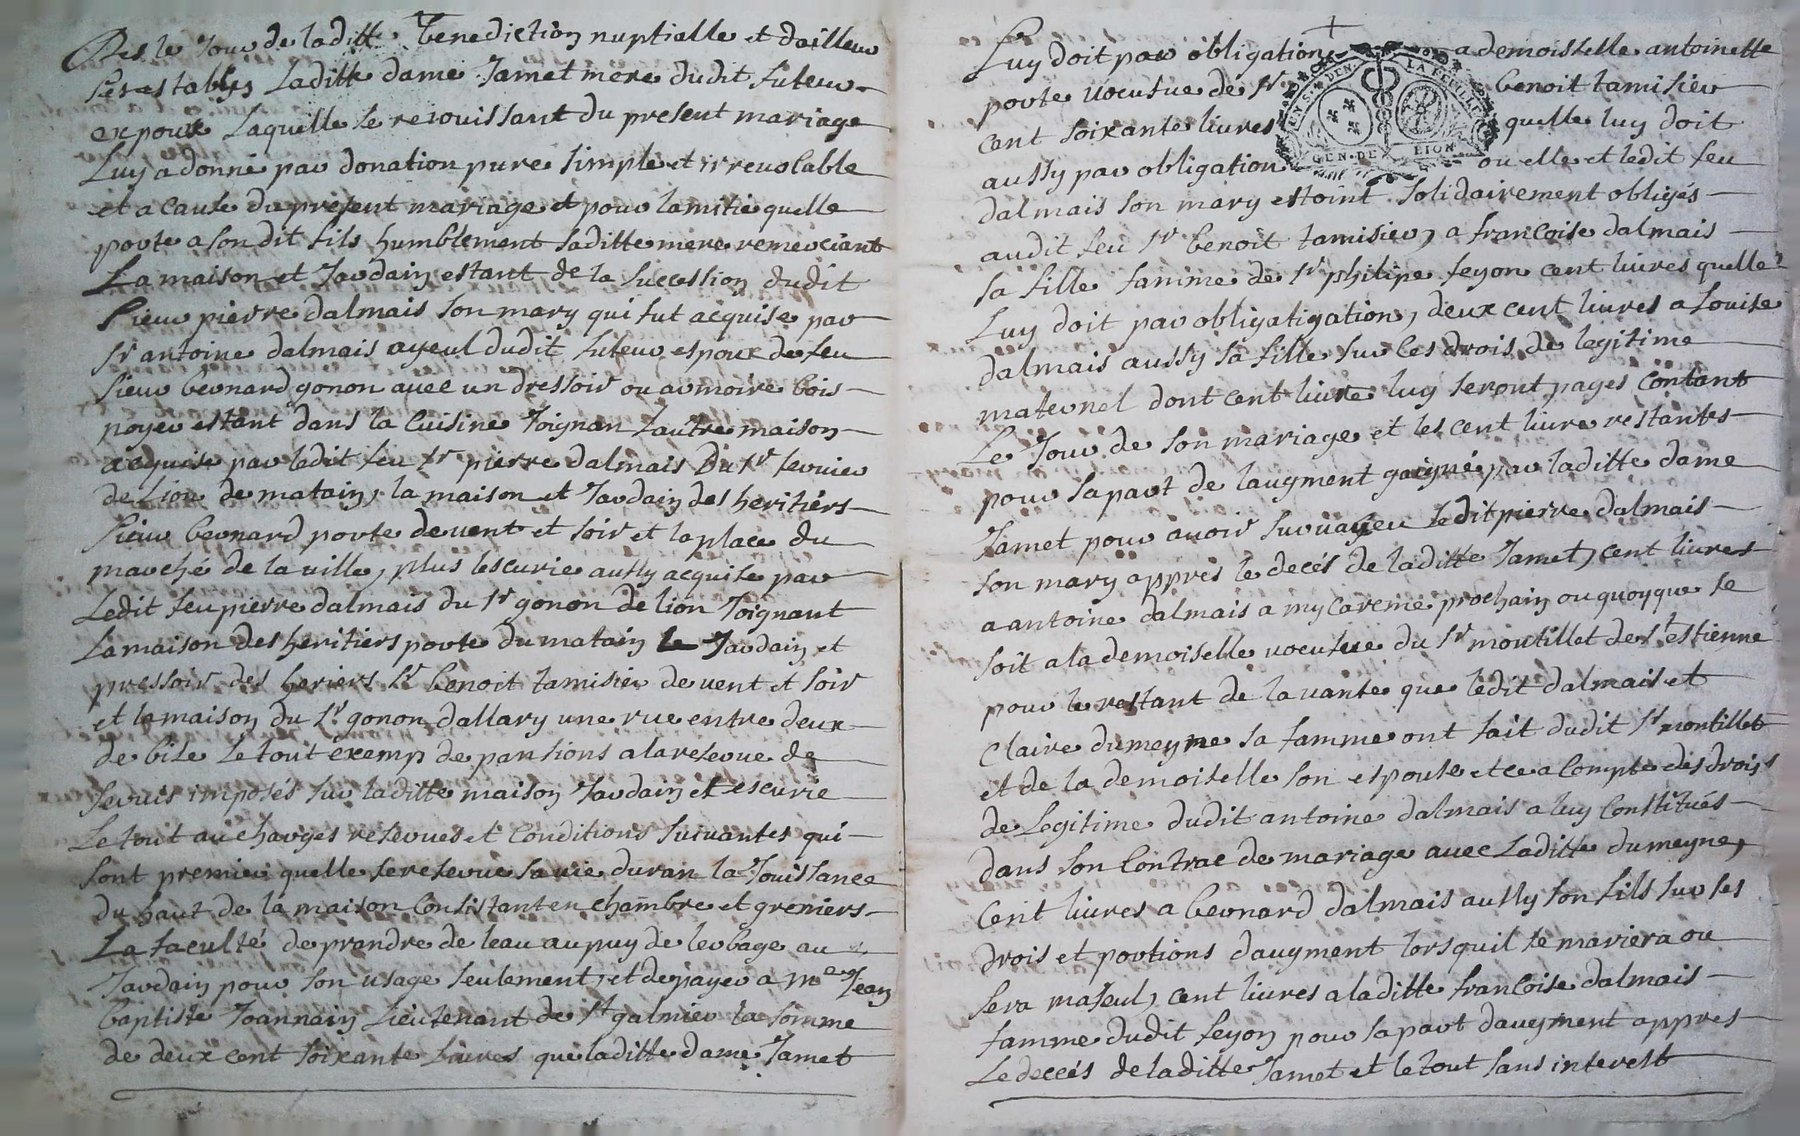 Des le Jour de laditte benediction nuptialle et dailleur
ses establys Laditte dame Jamet mere dudit futeur
expoux Laquelle se rejouissant du present mariage
Luy a donné par donation pure simple et irrevocable
et a cause du present mariage et pour lamitie quelle
porte a son dit fils humblement saditte mere remerciant
La maison et Jardain estant de la succession dudit
sieur pierre dalmais son mary qui fut acquise par
sr antoine dalmais ayeul dudit futeur espoux de feu
sieur bernard gonon avec un dressoir ou armoire bois
noyer estant dans la Cuisine Joignan Lautre maison
acquise par ledit feu sr pierre dalmais Du sr fevrier
de Lion de matain, la maison et Jardain des heritiers
sieur bernard porte de vent et soir et la place du
marché de la ville, plus lescurie aussy acquise par
Ledit feu pierre dalmais du sr gonon de lion Joignant
La maison des heritiers porte du matain le Jardain et
pressoir des heriers sr benoit tamisier de vent et soir
et la maison du sr gonon dallary une rue entre deux
de bize Le tout exemp de pansions a la reserve de
servis imposés sur laditte maison Jardain et escurie
Le tout au charges reserves et Conditions suivantes qui
sont premier quelle se reserve sa vie duran la Jouissance
du haut de la maison Consistant en chambre et greniers
La faculté de prandre de leau au puy de lerbage au
Jardain pour son usage seulement, et de payer a me Jean
baptiste Joannain Lieutenant de st galmier la somme
de deux cent soixante livres que laditte dame Jamet
Luy doit par obligation a demoiselle antoinette
porte voeufue de sr benoit tamisier
cent soixante livres quelle luy doit
aussy par obligation ou elle et ledit feu
dalmais son mary estoint solidairement obligés
audit feu sr benoit tamisier, a francoise dalmais
sa fille famme de sr philipe feyon cent livres quelle
Luy doit par obligatigation, deux cent livres a Louise
dalmais aussy sa fille sur les drois de legitime
maternel dont cent livre luy seront payes contant
Le Jour de son mariage et les cent livre restantes
pour sa part de laugment gaigné par laditte dame
Jamet pour avoir survaqeu ledit pierre dalmais
son mary appres le decés de laditte Jamet, cent livres
a antoine dalmais a my careme prochain ou quoyque se
soit a la demoiselle voeufue du sr montillet de st estienne
pour le restant de la vante que ledit dalmais et
Claire dumeyne sa famme ont fait dudit sr montillet
et de la demoiselle son espouse et ce a Compte des drois
de Legitime dudit antoine dalmais a luy Constitués
dans son Contrac de mariage avec Laditte dumeyne,
Cent livres a bernard dalmais aussy son fils sur ses
drois et portions daugment lorsquil se mariera ou
sera majeul, cent livres a laditte francoise dalmais
famme dudit feyon pour sa part daugment appres
Le decés de laditte Jamet et le tout sans interest
GEN · DE LION